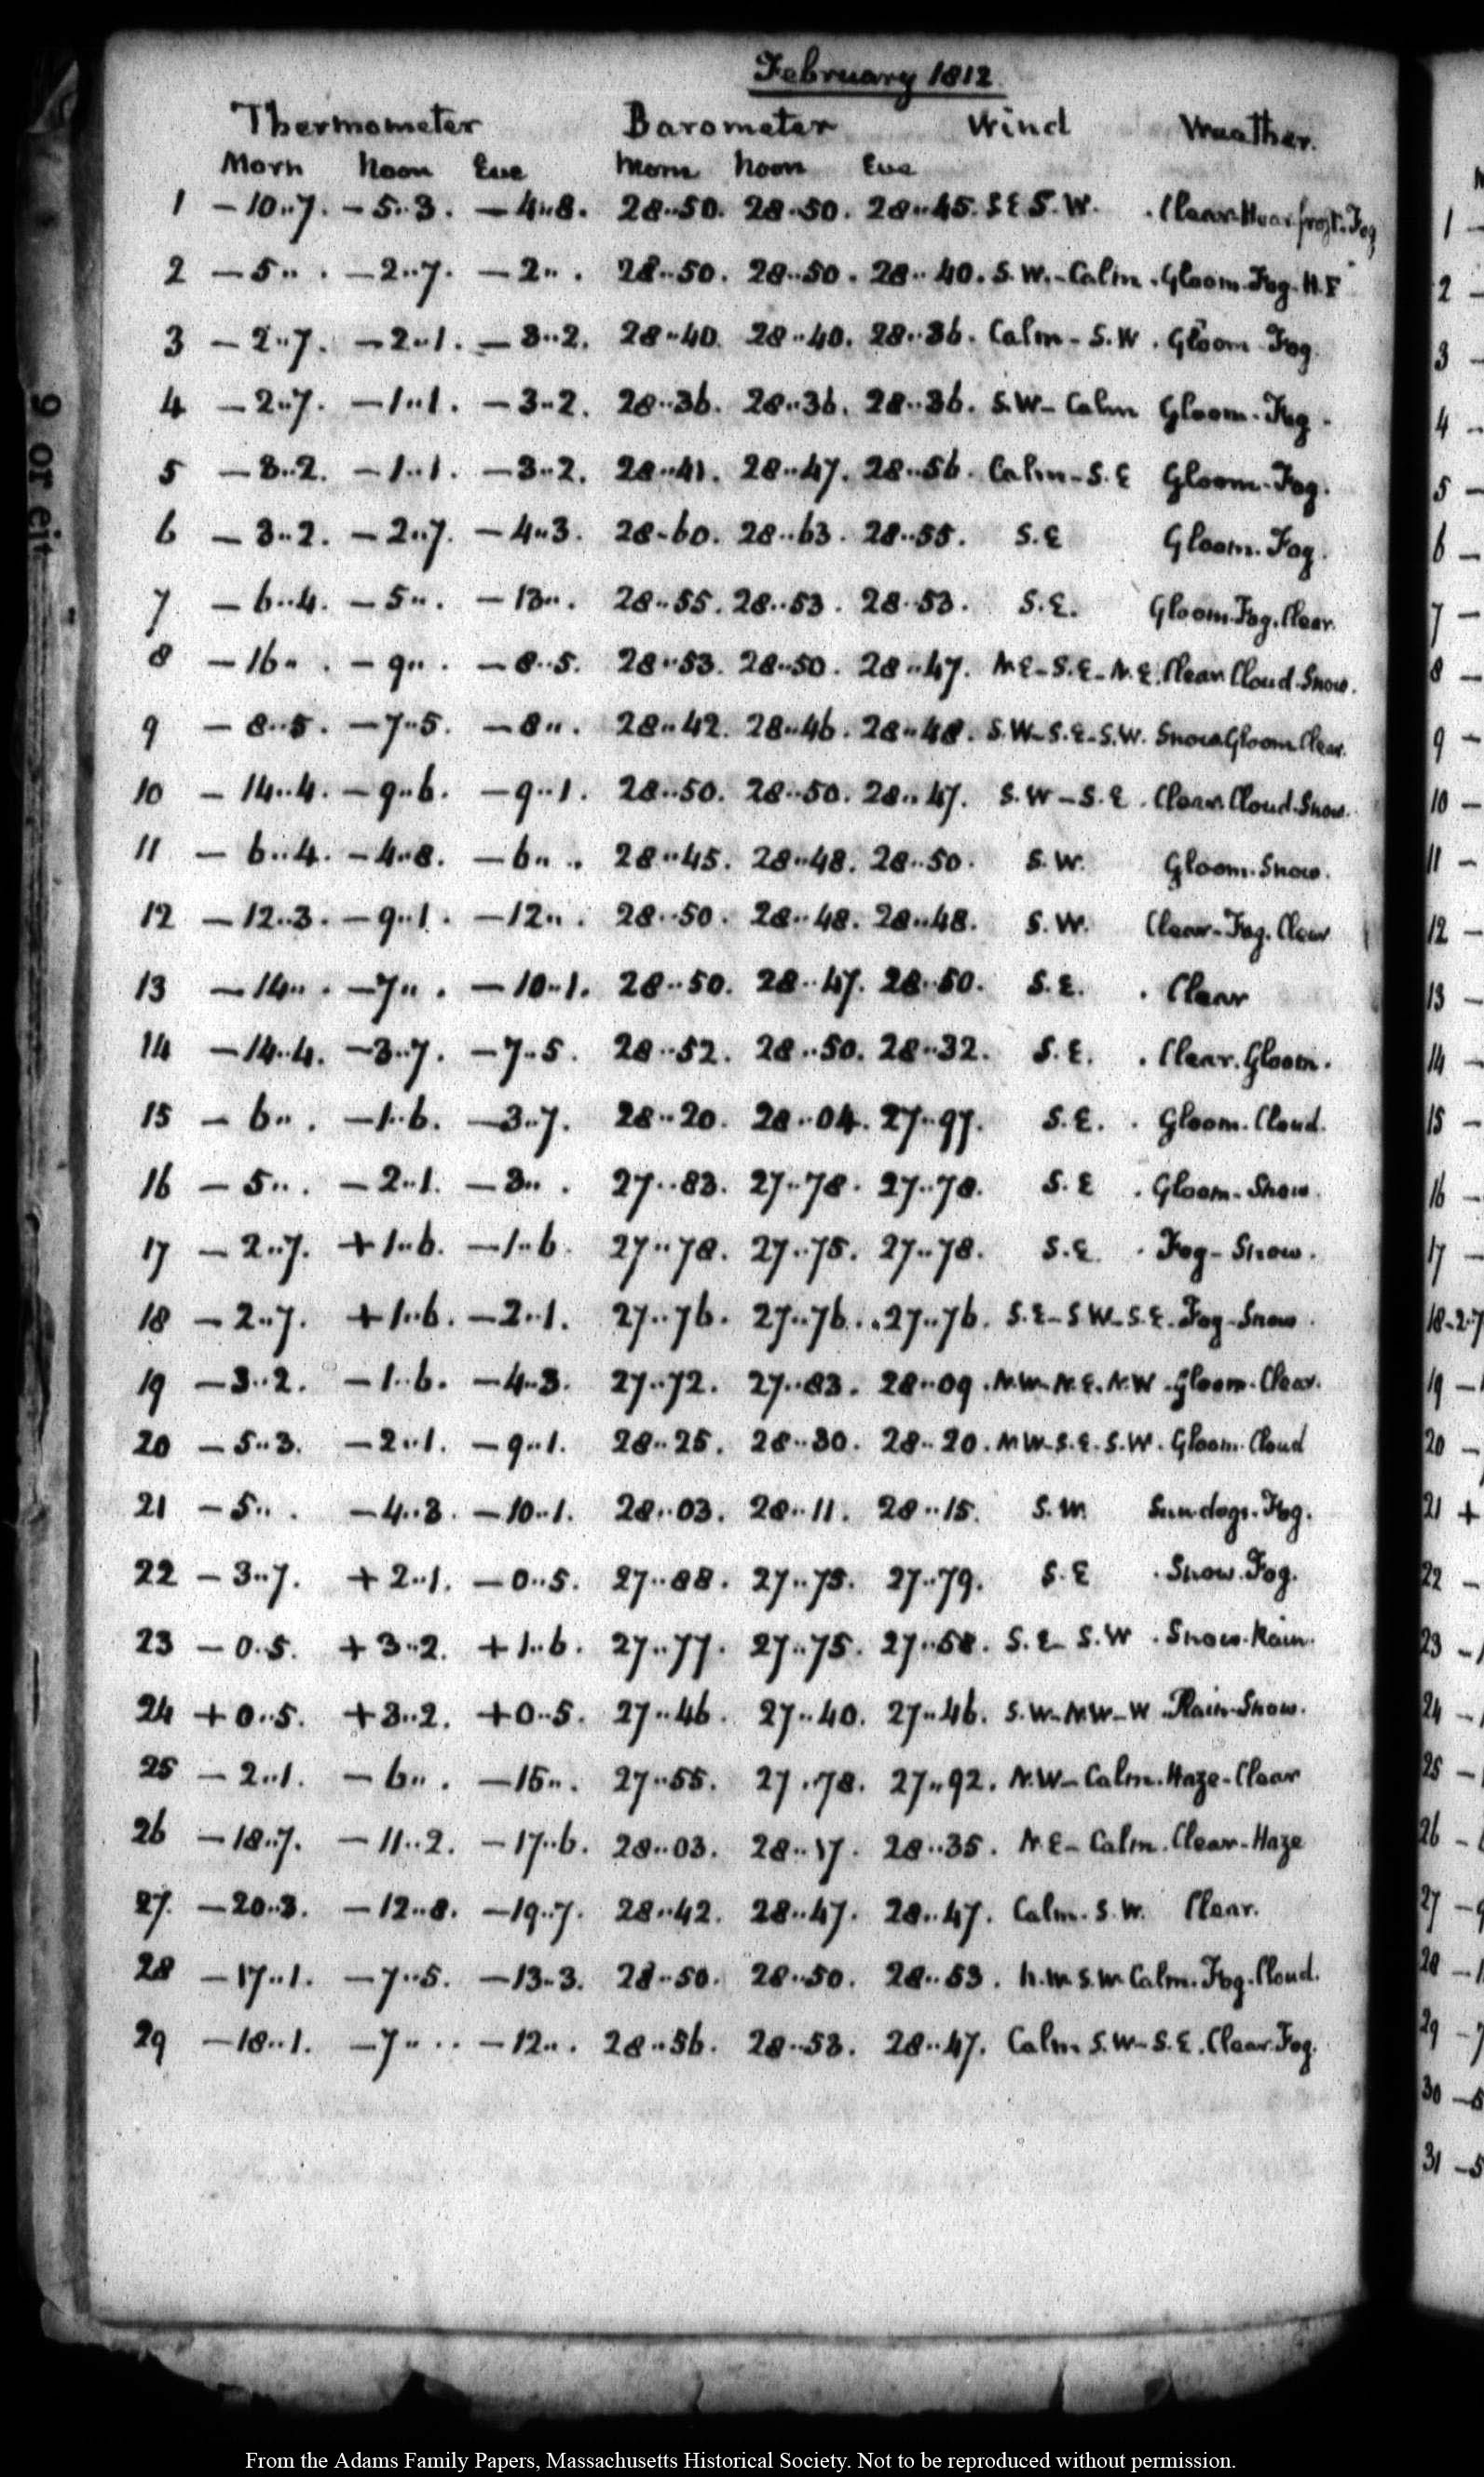 February 1812.
Thermometer Barometer Wind Weather.
Morn Noon Eve Morn Noon Eve
1 -10..7. -5..3. -4..8. 28..50. 28..50. 28..45. S.E S.W. . Clear. Hoar frost. Fog
2 -5.. . -2..7. -2.. . 28..50. 28..50. 28..40. S.W.-Calm. Gloom. Fog. H.F
3 -2..7. -2..1. -3..2. 28..40. 28..40. 28..36. Calm-S.W. Gloom Fog.
4 -2..7. -1..1. -3..2. 28..36. 28..36. 28..36. S.W-Calm Gloom. Fog.
5 -3..2. -1..1. -3..2. 28..41. 28..47. 28..56. Calm-S.E Gloom-Fog.
6 -3..2. -2..7. -4..3. 28..60. 28..63. 28..55. S.E Gloom. Fog.
7 -6..4. -5.. . -13.. . 28..55. 28..53. 28..53. S.E. Gloom. Fog. Clear.
8 -16.. . -9.. . -8..5. 28..53. 28..50. 28..47. N.E-S.E-N.E. Clear Cloud. Snow.
9 -8..5. -7..5. -8.. . 28..42. 28..46. 28..48. S.W-S.E-S.W. Snow Gloom Clear.
10 -14..4. -9..6. -9..1. 28..50. 28..50. 28..47. S.W-S.E. Clear. Cloud. Snow.
11 -6..4. -4..8. -6.. . 28..45. 28..48. 28..50. S.W. Gloom. Snow.
12 -12..3. -9..1. -12.. . 28..50. 28..48. 28..48. S.W. Clear-Fog. Clear
13 -14.. . -7.. . -10..1. 28..50. 28..47. 28..50. S.E. . Clear
14 -14..4. -3..7. -7..5. 28..52. 28..50. 28..32. S.E. . Clear. Gloom.
15 -6.. . -1..6. -3..7. 28..20. 28..04. 27..97. S.E. . Gloom. Cloud.
16 -5.. . -2..1. -3.. . 27..83. 27..78. 27..78. S.E . Gloom-Snow.
17 -2..7. +1..6. -1..6. 27..78. 27..75. 27..78. S.E. . Fog-Snow.
18 -2..7. +1..6. -2..1. 27..76. 27..76. .27..76. S.E-S.W-S.E. Fog-Snow.
19 -3..2. -1..6. -4..3. 27..72. 27..83. 28..09. N.W-N.E. N.W. Gloom. Clear.
20 -5..3. -2..1. -9..1. 28..25. 28..30. 28..20. N W-S.E-S.W. Gloom. Cloud
21 -5.. . -4..3. -10..1. 28..03. 28..11. 28..15. S.W Sundogs. Fog.
22 -3..7. +2..1. -0..5. 27..88. 27..75. 27..79. S.E . Snow. Fog.
23 -0.5. +3..2. +1..6. 27..77. 27..75. 27..58. S.E- S.W. Snow. Rain.
24 +0..5. +3..2. +0..5. 27..46. 27..40. 27..46. S.W-N.W-W. Rain-Snow.
25 -2..1. -6.. . -15.. . 27..55. 27..78. 27..92. N.W-Calm. Haze-Clear
26 -18..7. -11..2. -17..6. 28..03. 28..17. 28..35. N.E-Calm. Clear-Haze
27. -20..3. -12..8. -19..7. 28..42. 28..47. 28..47. Calm. S.W. Clear.
28 -17..1. -7..5. -13..3. 28..50. 28..50. 28..53. N.W S.W Calm. Fog. Cloud.
29 -18..1. -7.. . . -12.. . 28..56. 28..53. 28..47. Calm S.W-S.E. Clear. Fog.
9 or eit
1 -
2 -
3 -
4 -
5 -
6 -
7 -
8 -
9 -
10 -
11 -
12 -
13 -
14 -
15 -
16 -
17 -
18-2.7
19 -
20 -
21 +
22 -
23 -
24 -
25 -
26 -
27 -
28 -
29 -7
30 -
31 -5
From the Adams Family Papers, Massachusetts Historical Society. Not to be reproduced without permission.